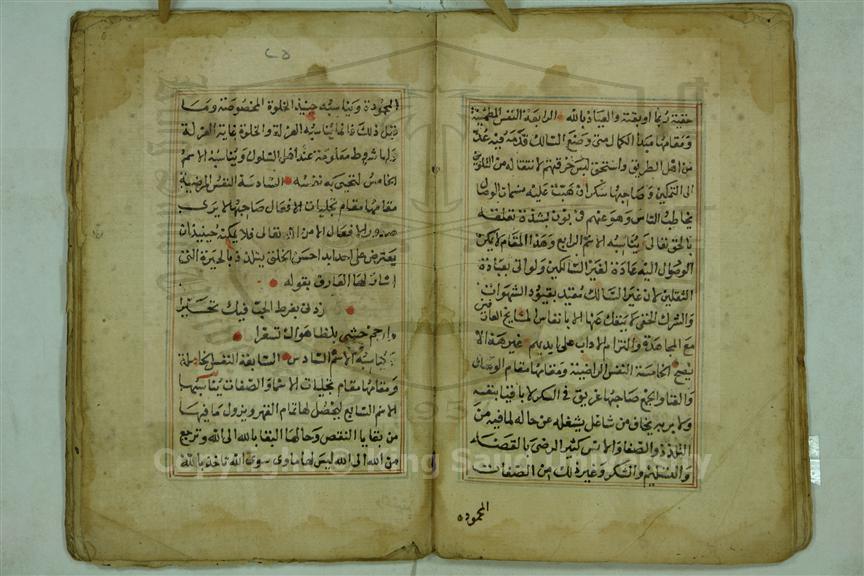 خفية ربما اوبقته والعياذ بالله الرابعة النفس المطمئنة
ومقامها مبدا الكمال متى وضع السالك قدمه فيه عد
من اهل الطريق واستحق لبس خرقتهم لانتقاله من التلوين
الى التمكين وصاحبها سكران هبت عليه نسمات الوصال
يخاطب الناس وهو عنهم في بون لشدة تعلقه
بالحق تعالى ويناسبه الاسم الرابع وهذا المقام لا يمكن
الوصول اليه عادة لغير السالكين ولو اتى بعبادة
الثقلين لان غير السالك مقيد بقيود الشهوات
والشرك الخفي لا ينفك عنها الا بانفاس المشايخ العارفين
مع المجاهدة والتزام الاداب على ايديهم غير هذا لا
يصح الخامسة النفس الراضية ومقامها مقام الوصال
والفنا صاحبها غريق في السكر لا باقيا بنفسه
من شاغل يشغله عن حاله لما فيه من
اللذذ والصفا والانس كثير الرضى بالقضاء
والتسليم والشكر وغير ذلك من الصفات
المحموده
المحمودة ويناسبه حينئذ الخلوة المخصوصة وما
قبل ذلك فانما يناسبه العزلة والخلوة غاية العزلة
ولها شروط معلومة عند اهل السلوك ويناسبه الاسم
الخامس السادسة النفس المرضية
مقامها مقام تجليات الافعال صاحبها لا يرى
صدور الافعال الا من الله تعالى فلا يمكنه حينئذ ان
يعترض على احد ابدا حسن الخلق يتلذذ بالحيرة التي
اشار لها العارف بقوله
زدني بفرط الحب فيك تحيرا
وارحم حشى بلظا هواك تسعرا
ويناسبه الاسم السادس السابعة النفس الكاملة
ومقامها مقام تجليات الاسما والصفات يناسبها
الاسم السابع ليحصل لها تمام القهر ويزول ما فيها
من بقايا النقص وحالها البقا بالله الى الله وترجع
من الله الى الله ليس لها ماوى سوى الله تاخذ بالله